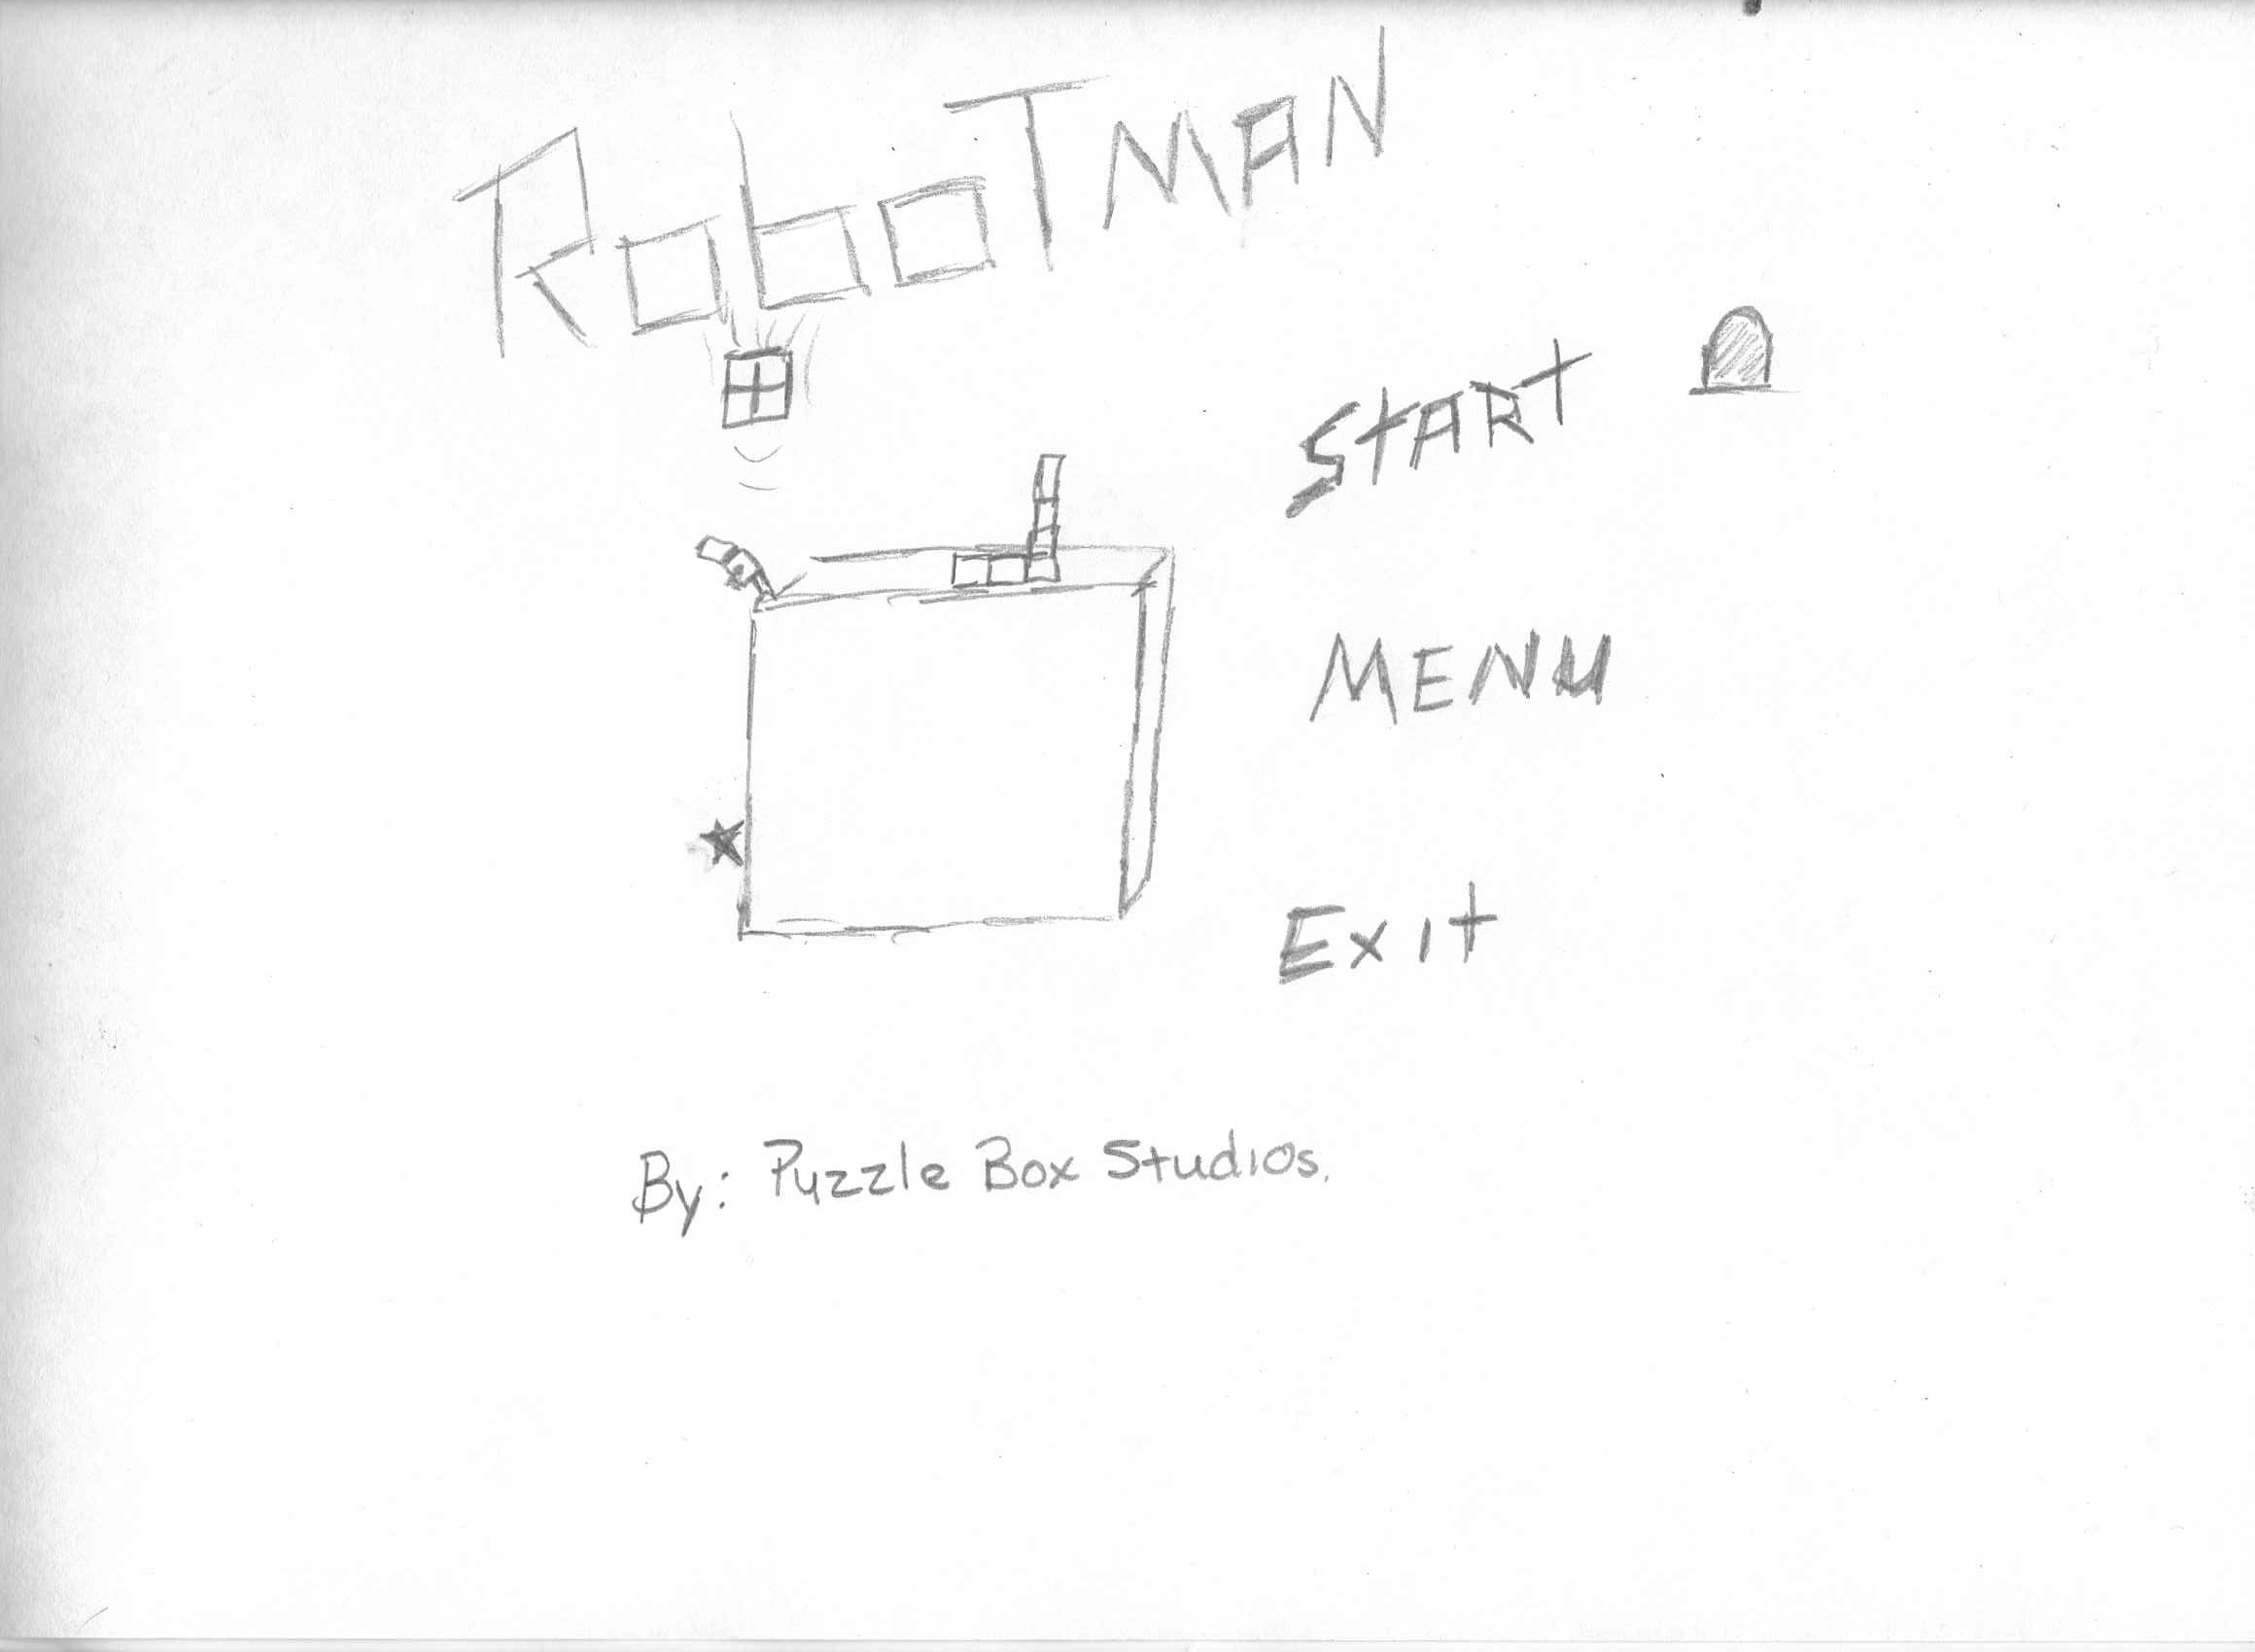 RoboTMAN
START
MENU
Exit
By: Puzzle Box Studios.